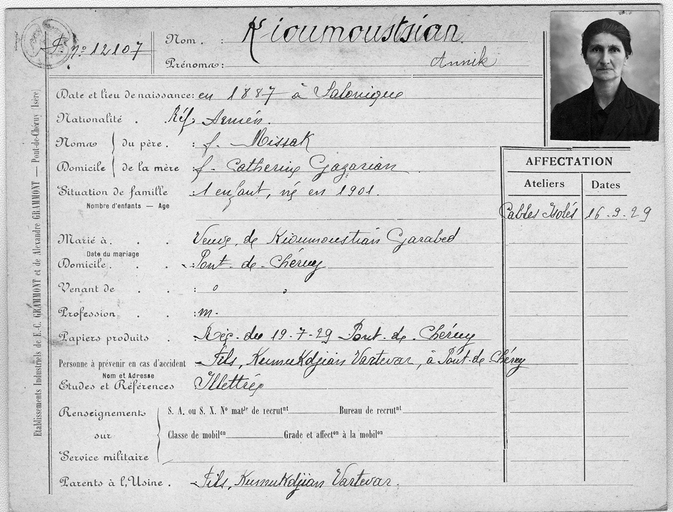 P. nº 12107
Nom. : Kioumoustsian
Prénoms : Annik
Date et lieu de naissance : en 1887 à Salonique
Nationalité . Réf. Armén.
Noms du père. : f. Missak
Domicile de la mère f. Catherine Gazarian
Situation de famille : 1 enfant, né en 1901.
Nombre d'enfants — Age
Marié à . . . Veuve de Kioumoustian Garabed
Date du mariage
Domicile. . . : Pont-de-Chéruy
Venant de . . : " "
Profession . . : m.
Papiers produits . Réc. du 19-7-29 Pont-de-Chéruy
Personne à prévenir en cas d'accident Fils, Kumukdjian Vartevar, à Pont-de-Chéruy
Nom et Adresse
Etudes et Références Illettrée
Renseignements S. A. ou S. X. Nº matle de recrutnt Bureau de recrutnt
sur Classe de mobilon Grade et affecton à la mobilon
Service militaire
Parents à l'Usine . Fils, Kumukdjian Vartevar.
AFFECTATION
Ateliers Dates
Cables Isolés 16-9-29
Etablissements Industriels de E.-C. GRAMMONT et de Alexandre GRAMMONT — Pont-de-Chéruy (Isère)